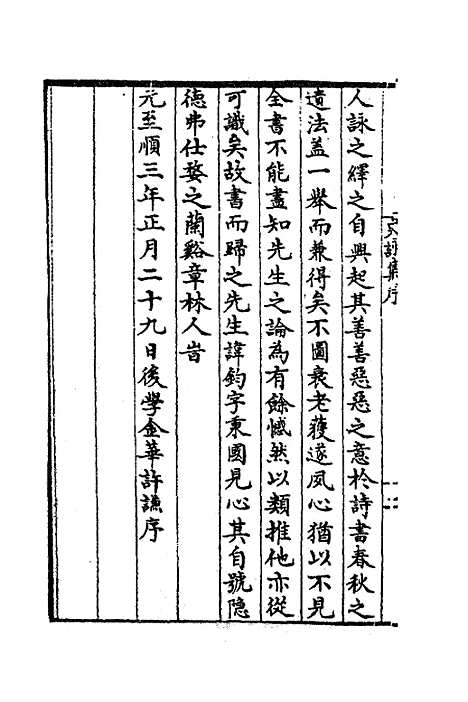 史詠集序
人詠之繹之自興起其善善惡惡之意於詩書春秋之
遺法蓋一舉而兼得矣不圖衰老獲遂夙心猶以不見
全書不能盡知先生之論為有餘憾然以類推他亦從
可識矣故書而歸之先生諱鈞字秉國見心其自號隱
德弗仕婺之蘭谿章林人旹
元至順三年正月二十九日後學金華許謙序